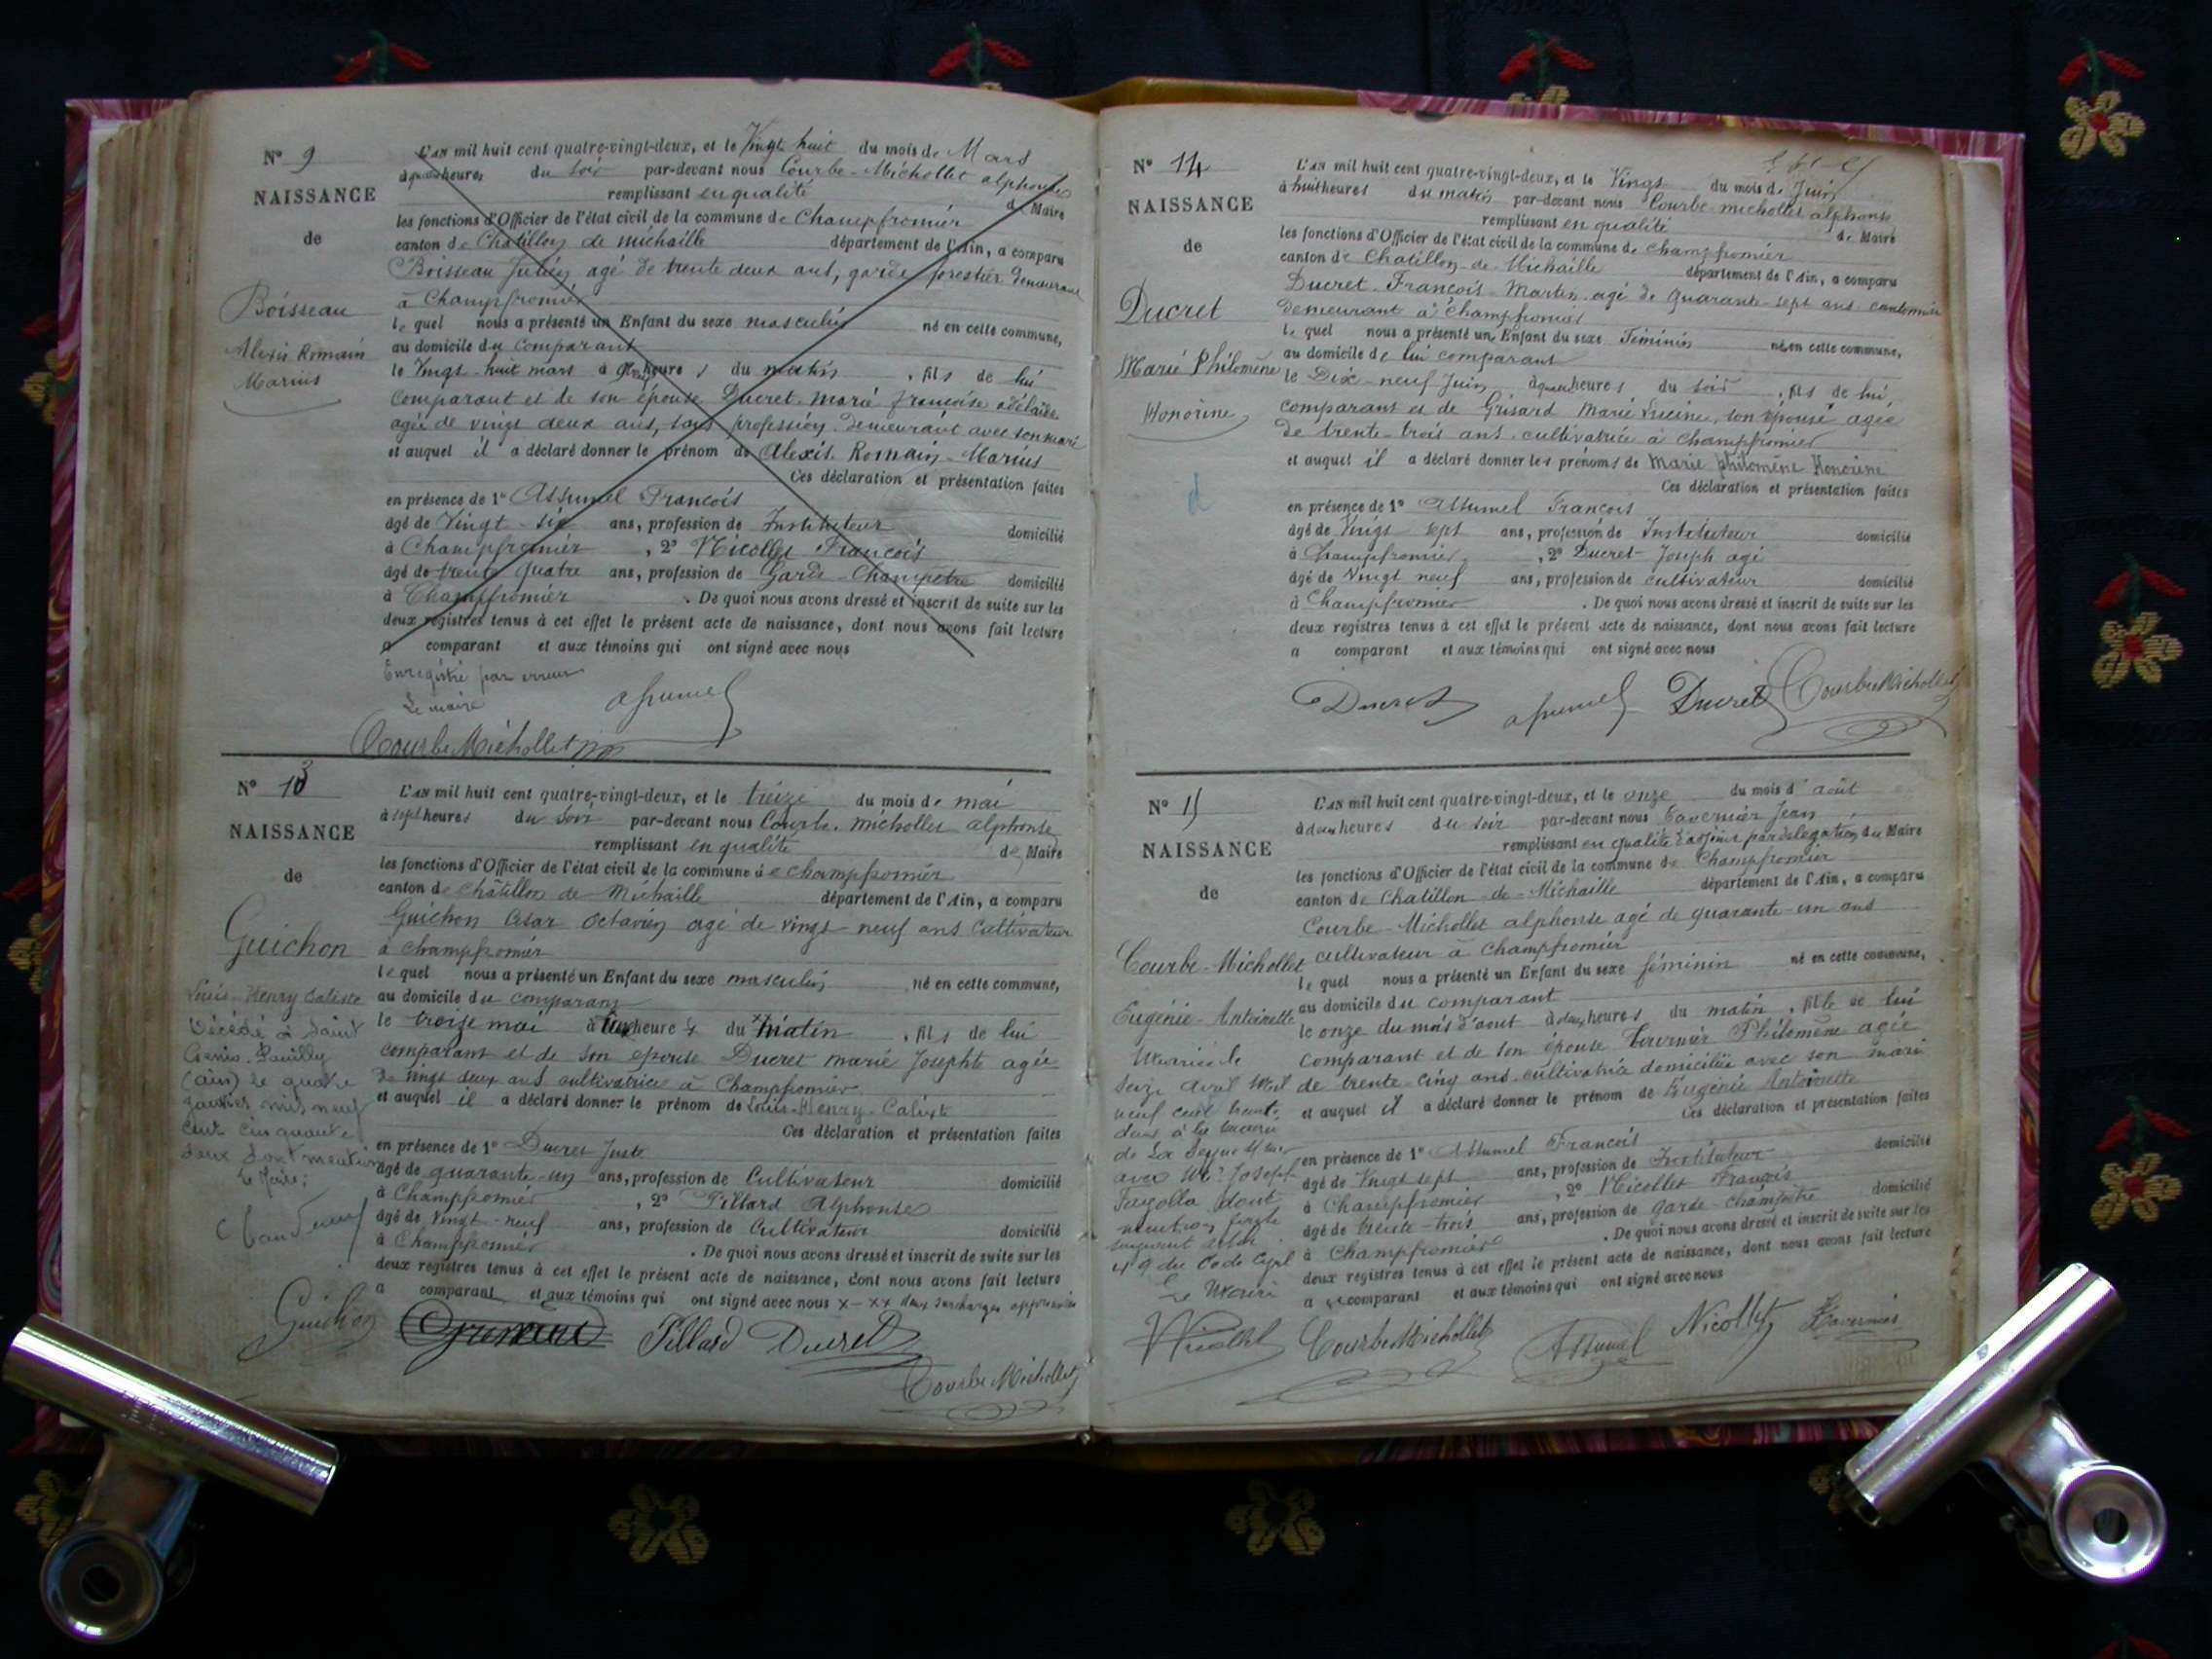 N° 9
NAISSANCE
de
Boisseau
Alexis Romain
Marius
L'AN mil huit cent quatre-vingt-deux, et le Vingt huit du mois de Mars
à quatre heures du soir par-devant nous Courbe-Michollet alphonse
remplissant en qualité de Maire
les fonctions d'Officier de l'état civil de la commune de Champfromier
canton de Chatillon de michaille département de l'Ain, a comparu
Boisseau Julien agé de trente deux ans, garde forestier demeurant
à Champfromier
le quel nous a présenté un Enfant du sexe masculin né en cette commune,
au domicile du comparant
le Vingt-huit mars à heures du matin, fils de lui
comparant et de son épouse Ducret marie françoise adélaïde
agée de vingt deux ans, sans profession demeurant avec son mari
et auquel il a déclaré donner le prénom de Alexis Romain Marius
Ces déclaration et présentation faites
en présence de 1° Assumel François
âgé de Vingt-six ans, profession de Instituteur domicilié
à Champfromier, 2° Nicollet François
âgé de trente quatre ans, profession de Garde-Champetre domicilié
à Champfromier. De quoi nous avons dressé et inscrit de suite sur les
deux registres tenus à cet effet le présent acte de naissance, dont nous avons fait lecture
a comparant et aux témoins qui ont signé avec nous
Enregistré par erreur
Le maire
Assumel
Courbe Michollet
N° 13
NAISSANCE
de
Guichon
Louis-Henry Calixte
Décédé à Saint
Genis-Pouilly
(ain) le quatre
janvier mil neuf
cent cinquante
deux dont mention
Le Maire,
L'AN mil huit cent quatre-vingt-deux, et le treize du mois de mai
à sept heures du soir par-devant nous Courbe-michollet alphonse
remplissant en qualité de Maire
les fonctions d'Officier de l'état civil de la commune de champfromier
canton de châtillon de Michaille département de l'Ain, a comparu
Guichon César Octavien agé de vingt-neuf ans cultivateur
à champfromier
le quel nous a présenté un Enfant du sexe masculin, né en cette commune,
au domicile du comparant
le treize mai à heure x du xx matin, fils de lui
comparant et de son epouse Ducret marie Josephte agée
de vingt deux ans cultivatrice à Champfromier
et auquel il a déclaré donner le prénom de Louis-Henry-Calixte
Ces déclaration et présentation faites
en présence de 1° Ducret Juste
âgé de quarante-un ans, profession de Cultivateur domicilié
à Champfromier, 2° Pillard Alphonse
âgé de vingt-neuf ans, profession de Cultivateur domicilié
à Champfromier. De quoi nous avons dressé et inscrit de suite sur les
deux registres tenus à cet effet le présent acte de naissance, dont nous avons fait lecture
a comparant et aux témoins qui ont signé avec nous x-xx deux surcharges approuvées
Guichon Pillard Ducret
Courbe Michollet
N° 14
NAISSANCE
de
Ducret
Marie Philomène
Honorine
d
L'AN mil huit cent quatre-vingt-deux, et le Vingt du mois de Juin
à huit heures du matin par-devant nous Courbe-michollet alphonse
remplissant en qualité de Maire
les fonctions d'Officier de l'état civil de la commune de champfromier
canton de Chatillon-de-Michaille département de l'Ain, a comparu
Ducret-François-Martin agé de quarante-sept ans cantonnier
demeurant à champfromier
le quel nous a présenté un Enfant du sexe Féminin né en cette commune,
au domicile de lui comparant
le Dix-neuf Juin à quatre heures du soir, fils de lui,
comparant et de Grisard Marie Lucine, son épouse agée
de trente-trois ans cultivatrice à champfromier
et auquel il a déclaré donner les prénoms de Marie philomène Honorine
Ces déclaration et présentation faites
en présence de 1° Assumel François
âgé de Vingt sept ans, profession de Instituteur domicilié
à Champfromier, 2° Ducret-Joseph agé
âgé de Vingt neuf ans, profession de cultivateur domicilié
à Champfromier. De quoi nous avons dressé et inscrit de suite sur les
deux registres tenus à cet effet le présent acte de naissance, dont nous avons fait lecture
a comparant et aux témoins qui ont signé avec nous
Ducret Assumel Ducret Courbe Michollet
N° 15
NAISSANCE
de
Courbe-Michollet
Eugénie-Antoinette
Mariée le
seize avril Mil
neuf cent trente
deux à la mairie
de La Seyne
avec Mr Joseph
Fayolla dont
mention faite
49 du Code Civil
Le Maire
L'AN mil huit cent quatre-vingt-deux, et le onze du mois d'août
à deux heures du soir par-devant nous Tavernier Jean
remplissant en qualité d'adjoint par délégation du Maire
les fonctions d'Officier de l'état civil de la commune de Champfromier
canton de Chatillon-de-Michaille département de l'Ain, a comparu
Courbe-Michollet alphonse agé de quarante-un ans
cultivateur à Champfromier
le quel nous a présenté un Enfant du sexe féminin né en cette commune,
au domicile du comparant
le onze du mois d'aout à deux heures du matin, fille de lui
comparant et de son épouse Tournier Philomène agée
de trente-cinq ans cultivatrice domiciliée avec son mari
et auquel il a déclaré donner le prénom de Eugénie Antoinette
Ces déclaration et présentation faites
en présence de 1° Assumel François domicilié
âgé de Vingt sept ans, profession de Instituteur
à Champfromier, 2° Nicollet François
âgé de trente-trois ans, profession de garde-champêtre domicilié
à Champfromier. De quoi nous avons dressé et inscrit de suite sur les
deux registres tenus à cet effet le présent acte de naissance, dont nous avons fait lecture
a le comparant et aux témoins qui ont signé avec nous
Courbe Michollet Assumel Nicollet Tavernier